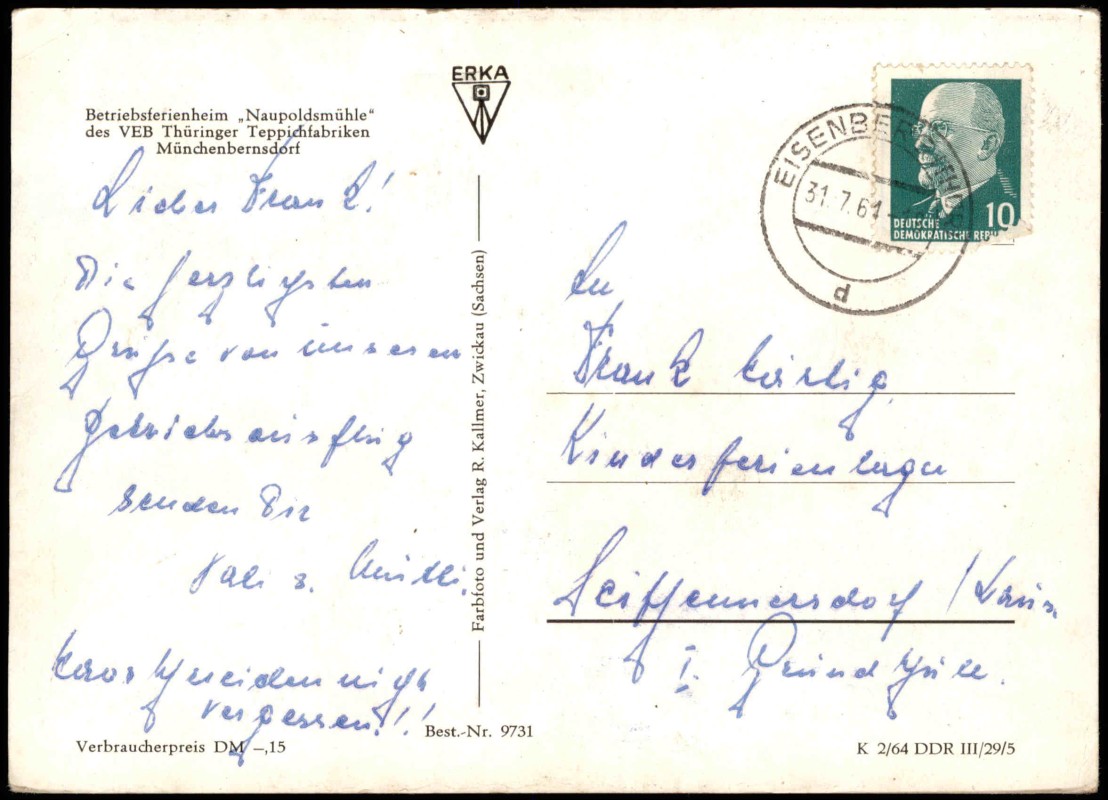 Betriebsferienheim „Naupoldsmühle“
des VEB Thüringer Teppichfabriken
Münchenbernsdorf
ERKA
Lieber Frank!
Die herzlichsten
Grüße von unseren
Betriebsausflug
senden Dir
Vati u. Mutti.
Haarschneiden nicht
vergessen!!
Verbraucherpreis DM –,15
Farbfoto und Verlag R. Kallmer, Zwickau (Sachsen)
Best.-Nr. 9731
EISENBERG
31.7.64
d
10
DEUTSCHE
DEMOKRATISCHE REPU
An
Frank
Kinderferienlager
Seifhennersdorf /
I. Grundschule.
K 2/64 DDR III/29/5